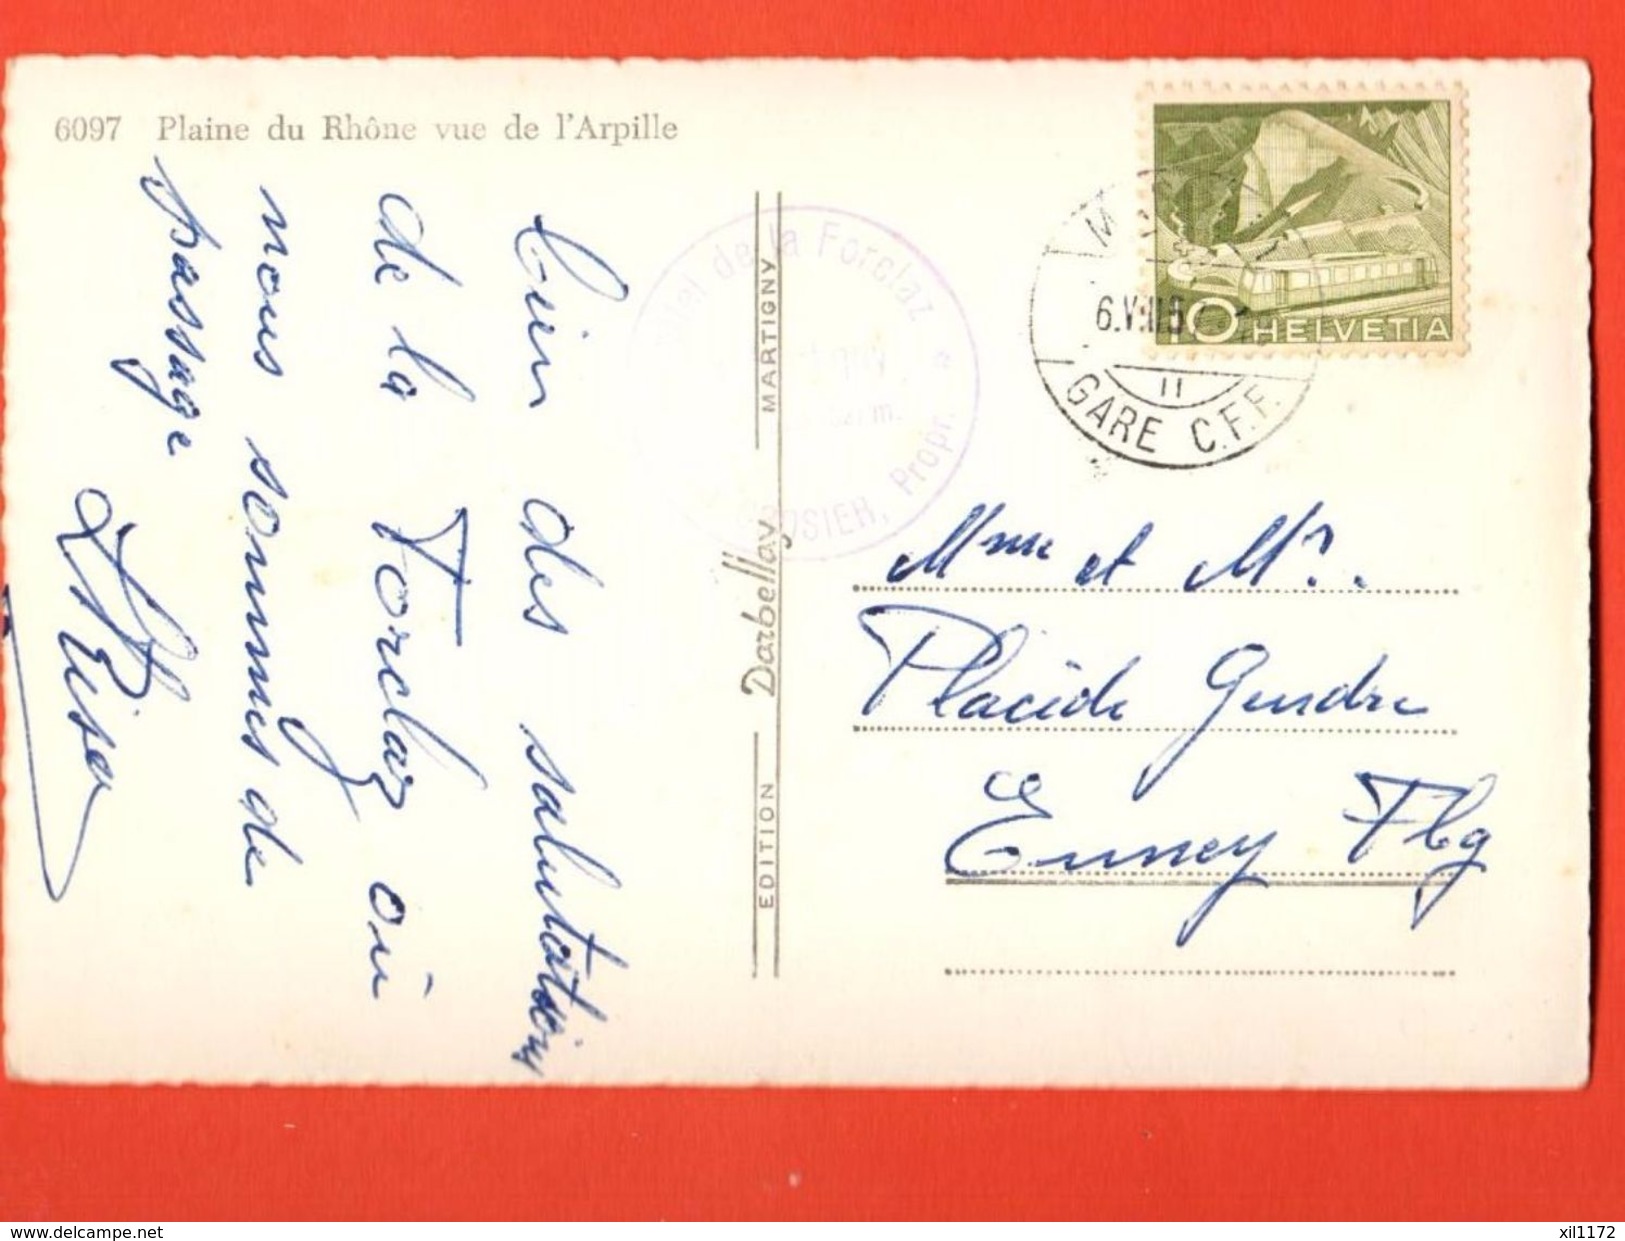 6097 Plaine du Rhône vue de l'Arpille
bien des salutations
de la Forclaz où
nous sommes de
passage
EDITION Darbellay MARTIGNY
de la Forclaz
Propr.
6.VIII.5
GARE C.F.F.
II
10 HELVETIA
Mme et Mr.
Placide Gendre
Enney Fbg
delcampe.net
xil1172